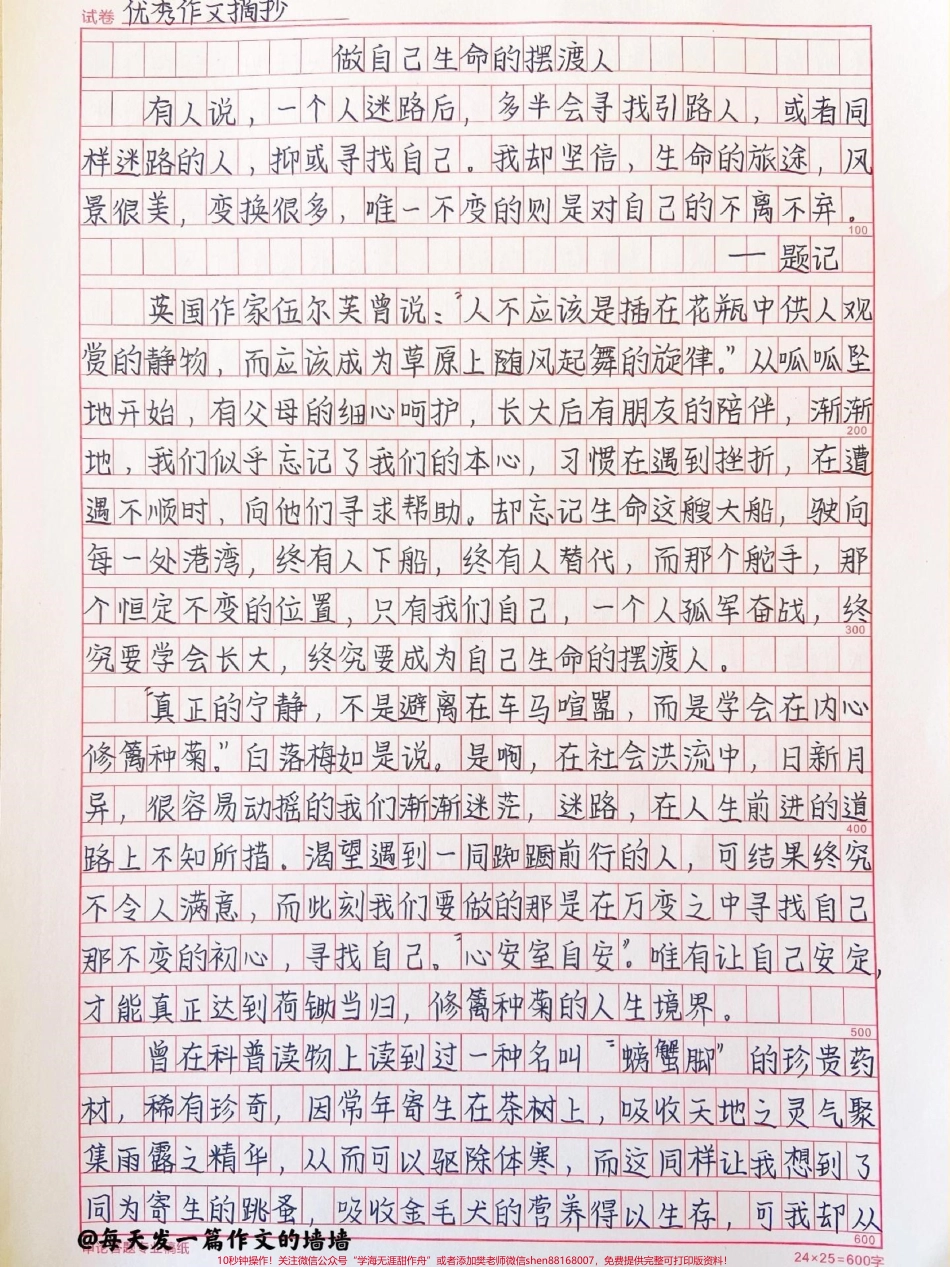 试卷 优秀作文摘抄
做自己生命的摆渡人
有人说，一个人迷路后，多半会寻找引路人，或者同
样迷路的人，抑或寻找自己。我却坚信，生命的旅途，风
景很美，变换很多，唯一不变的则是对自己的不离不弃。
100
一 题记
英国作家伍尔芙曾说：“人不应该是插在花瓶中供人观
赏的静物，而应该成为草原上随风起舞的旋律。”从呱呱坠
地开始，有父母的细心呵护，长大后有朋友的陪伴，渐渐
200
地，我们似乎忘记了我们的本心，习惯在遇到挫折，在遭
遇不顺时，向他们寻求帮助。却忘记生命这艘大船，驶向
每一处港湾，终有人下船，终有人替代，而那个舵手，那
个恒定不变的位置，只有我们自己，一个人孤军奋战，终
300
究要学会长大，终究要成为自己生命的摆渡人。
“真正的宁静，不是避离在车马喧嚣，而是学会在内心
修篱种菊。”白落梅如是说。是啊，在社会洪流中，日新月
异，很容易动摇的我们渐渐迷茫，迷路，在人生前进的道
400
路上不知所措。渴望遇到一同踟蹰前行的人，可结果终究
不令人满意，而此刻我们要做的那是在万变之中寻找自己
那不变的初心，寻找自己。“心安室自安”。唯有让自己安定，
才能真正达到荷锄当归，修篱种菊的人生境界。
500
曾在科普读物上读到过一种名叫“螃蟹脚”的珍贵药
材，稀有珍奇，因常年寄生在茶树上，吸收天地之灵气聚
集雨露之精华，从而可以驱除体寒，而这同样让我想到了
同为寄生的跳蚤，吸收金毛犬的营养得以生存，可我却从
600
@每天发一篇作文的墙墙
24×25=600字
10秒钟操作！关注微信公众号“学海无涯甜作舟”或者添加樊老师微信shen88168007，免费提供完整可打印版资料！